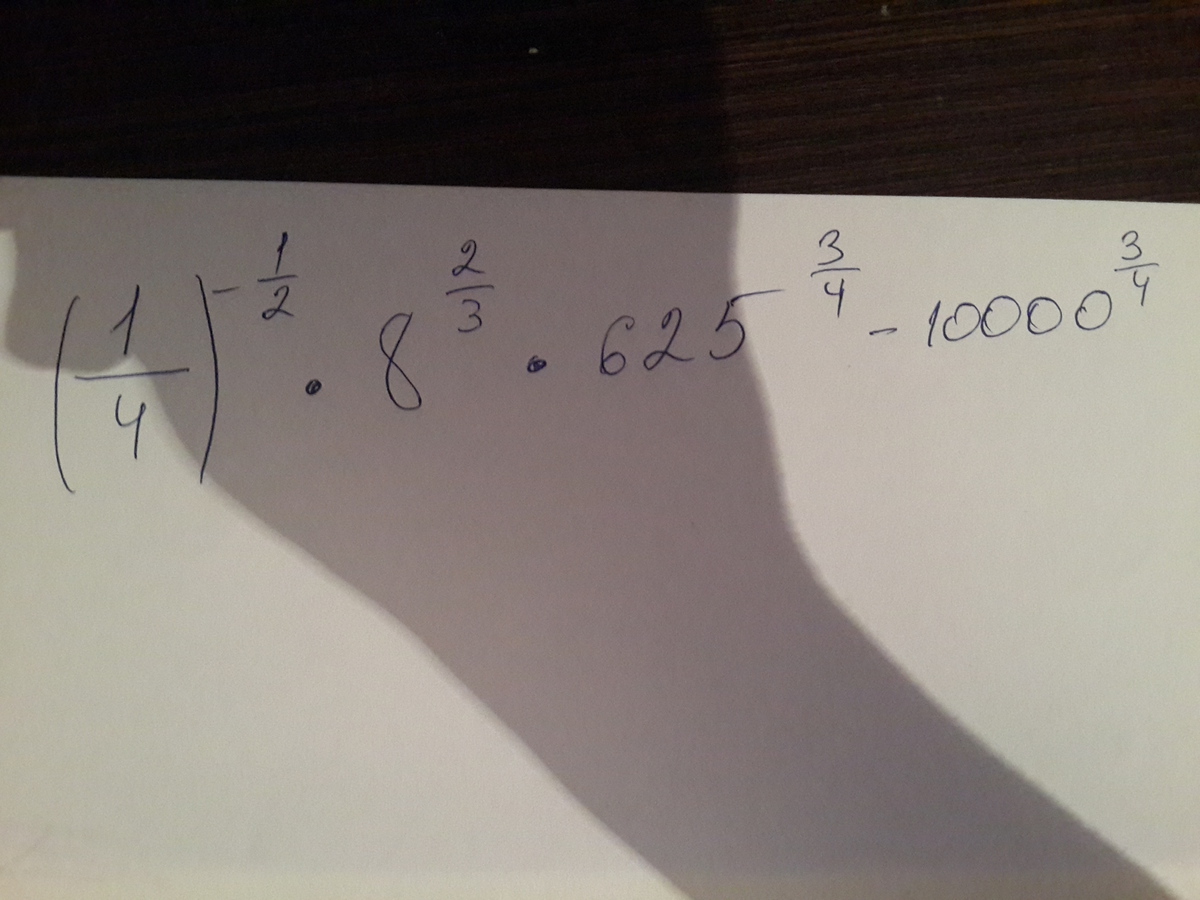 (1/4)^{-1/2} · 8^{2/3} · 625^{-3/4} - 10000^{3/4}